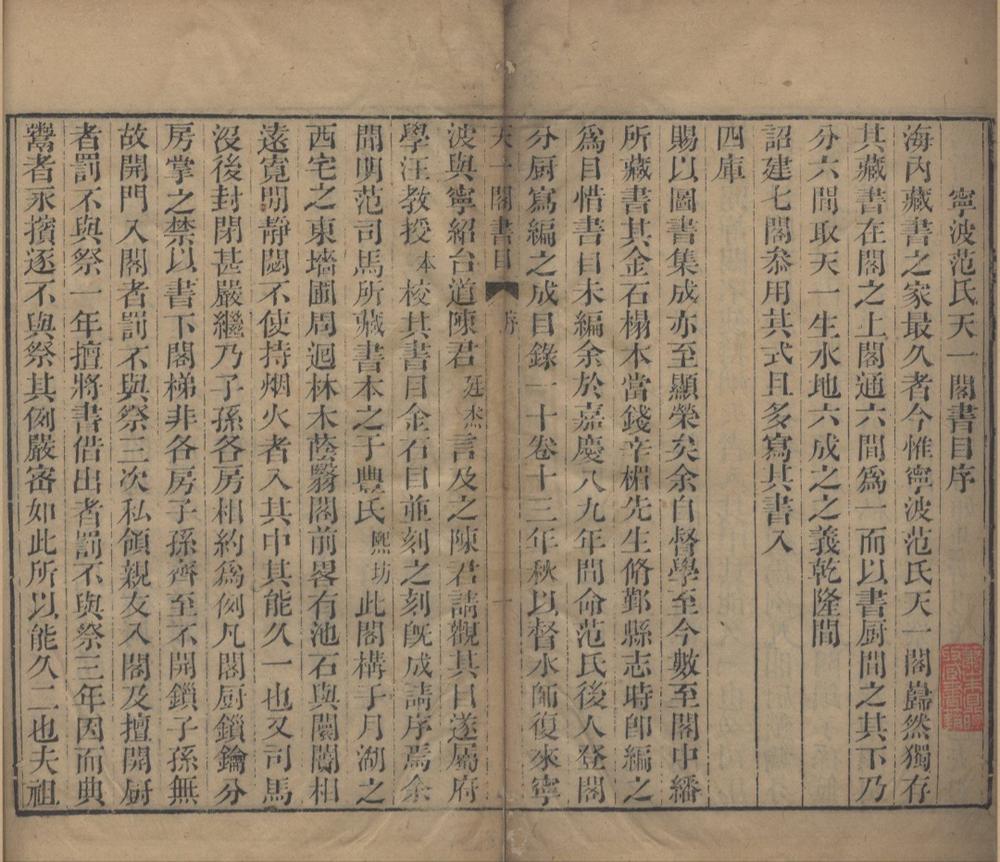 寧波范氏天一閣書目序
海內藏書之家最久者今惟寧波范氏天一閣巋然獨存
其藏書在閣之上閣通六間爲一而以書厨間之其下乃
分六間取天一生水地六成之之義乾隆間
詔建七閣叅用其式且多寫其書入
四庫
賜以圖書集成亦至顯榮矣余自督學至今數至閣中繙
所藏書其金石榻本當錢辛楣先生脩鄞縣志時卽編之
爲目惜書目未編余於嘉慶八九年間命范氏後人登閣
分厨寫編之成目錄一十卷十三年秋以督水師復來寧
天一閣書目 序 一
波與寧紹台道陳君廷杰言及之陳君請觀其目遂屬府
學汪教授本校其書目金石目並刻之刻旣成請序焉余
聞明范司馬所藏書本之于豐氏熙坊此閣構于月湖之
西宅之東墻圃周迴林木蔭翳閣前畧有池石與闤闠相
遠寬閒靜閟不使持烟火者入其中其能久一也又司馬
沒後封閉甚嚴繼乃子孫各房相約爲例凡閣厨鎖鑰分
房掌之禁以書下閣梯非各房子孫齊至不開鎖子孫無
故開門入閣者罰不與祭三次私領親友入閣及擅開厨
者罰不與祭一年擅將書借出者罰不與祭三年因而典
鬻者永擯逐不與祭其例嚴密如此所以能久二也夫祖